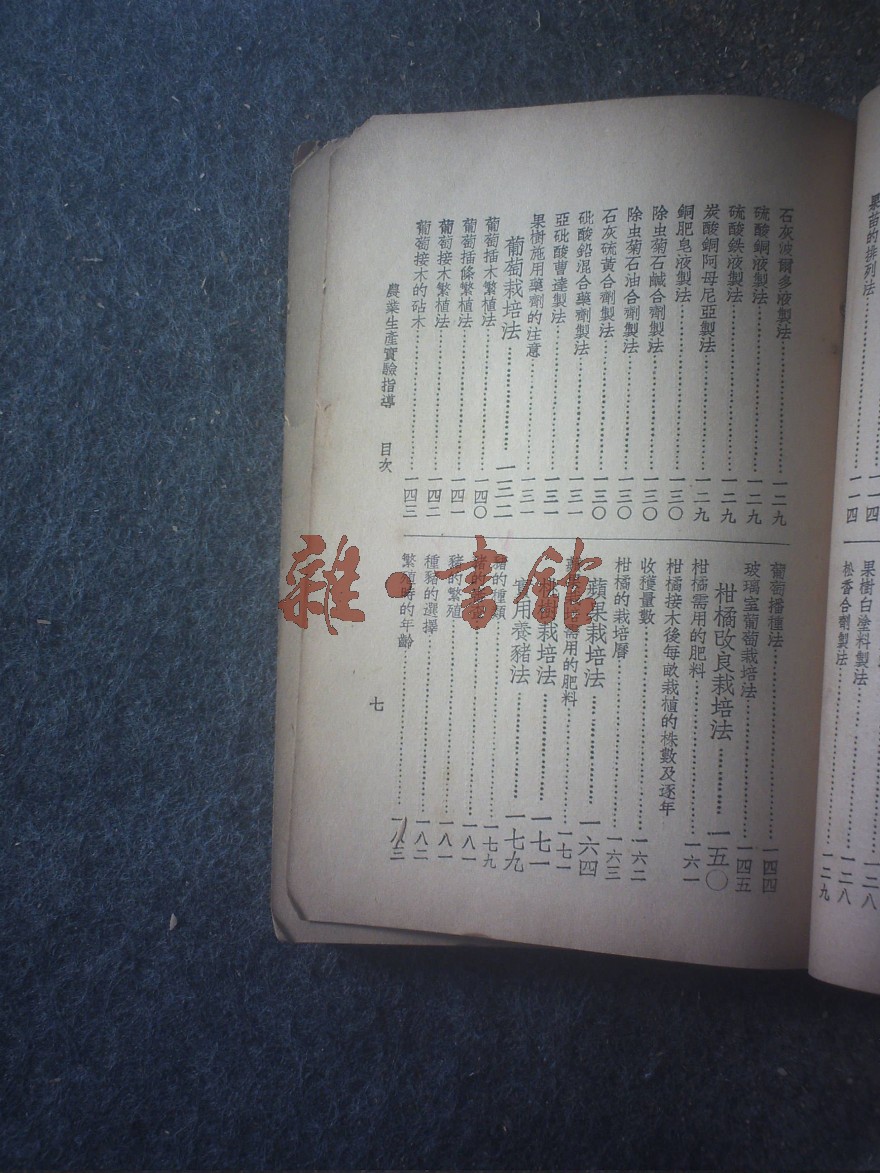 果苗的排列法……一一四
一一四
果樹白塗料製法……一二八
松香合劑製法……一二八
一二九
石灰波爾多液製法……一二九
硫酸銅液製法……一二九
硫酸鉄液製法……一二九
炭酸銅阿母尼亞製法……一二九
銅肥皂液製法……一三〇
除虫菊石鹹合劑製法……一三〇
除虫菊石油合劑製法……一三〇
石灰硫黃合劑製法……一三〇
砒酸鉛混合藥劑製法……一三一
亞砒酸曹達製法……一三一
果樹施用藥劑的注意……一三一
葡萄栽培法……一三二
葡萄插木繁植法……一四〇
葡萄插條繁植法……一四一
葡萄接木繁植法……一四二
葡萄接木的砧木……一四三
葡萄播種法……一四四
玻璃室葡萄栽培法……一四五
柑橘改良栽培法……一五〇
柑橘需用的肥料……一六一
柑橘接木後每畝栽植的株數及逐年
收穫量數……一六二
柑橘的栽培曆……一六三
蘋果栽培法……一六四
需用的肥料……一七一
栽培法……一七一
實用養豬法……一七九
豬的種類……一七九
豬的……一八一
豬的繁殖……一八一
種豬的選擇……一八二
繁殖時的年齡……一八三
農業生產實驗指導 目次
七
雜·書館